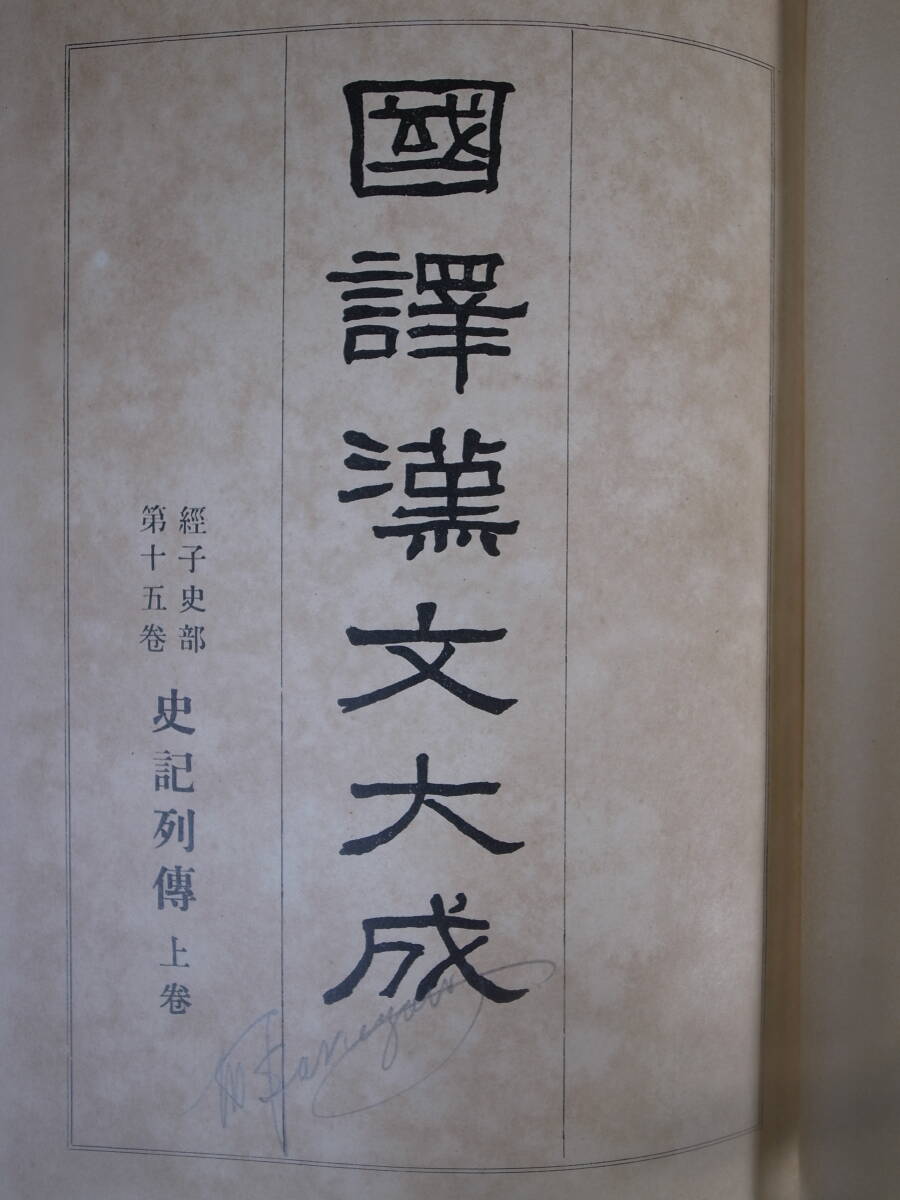 國譯漢文大成
經子史部
第十五卷
史記列傳 上卷